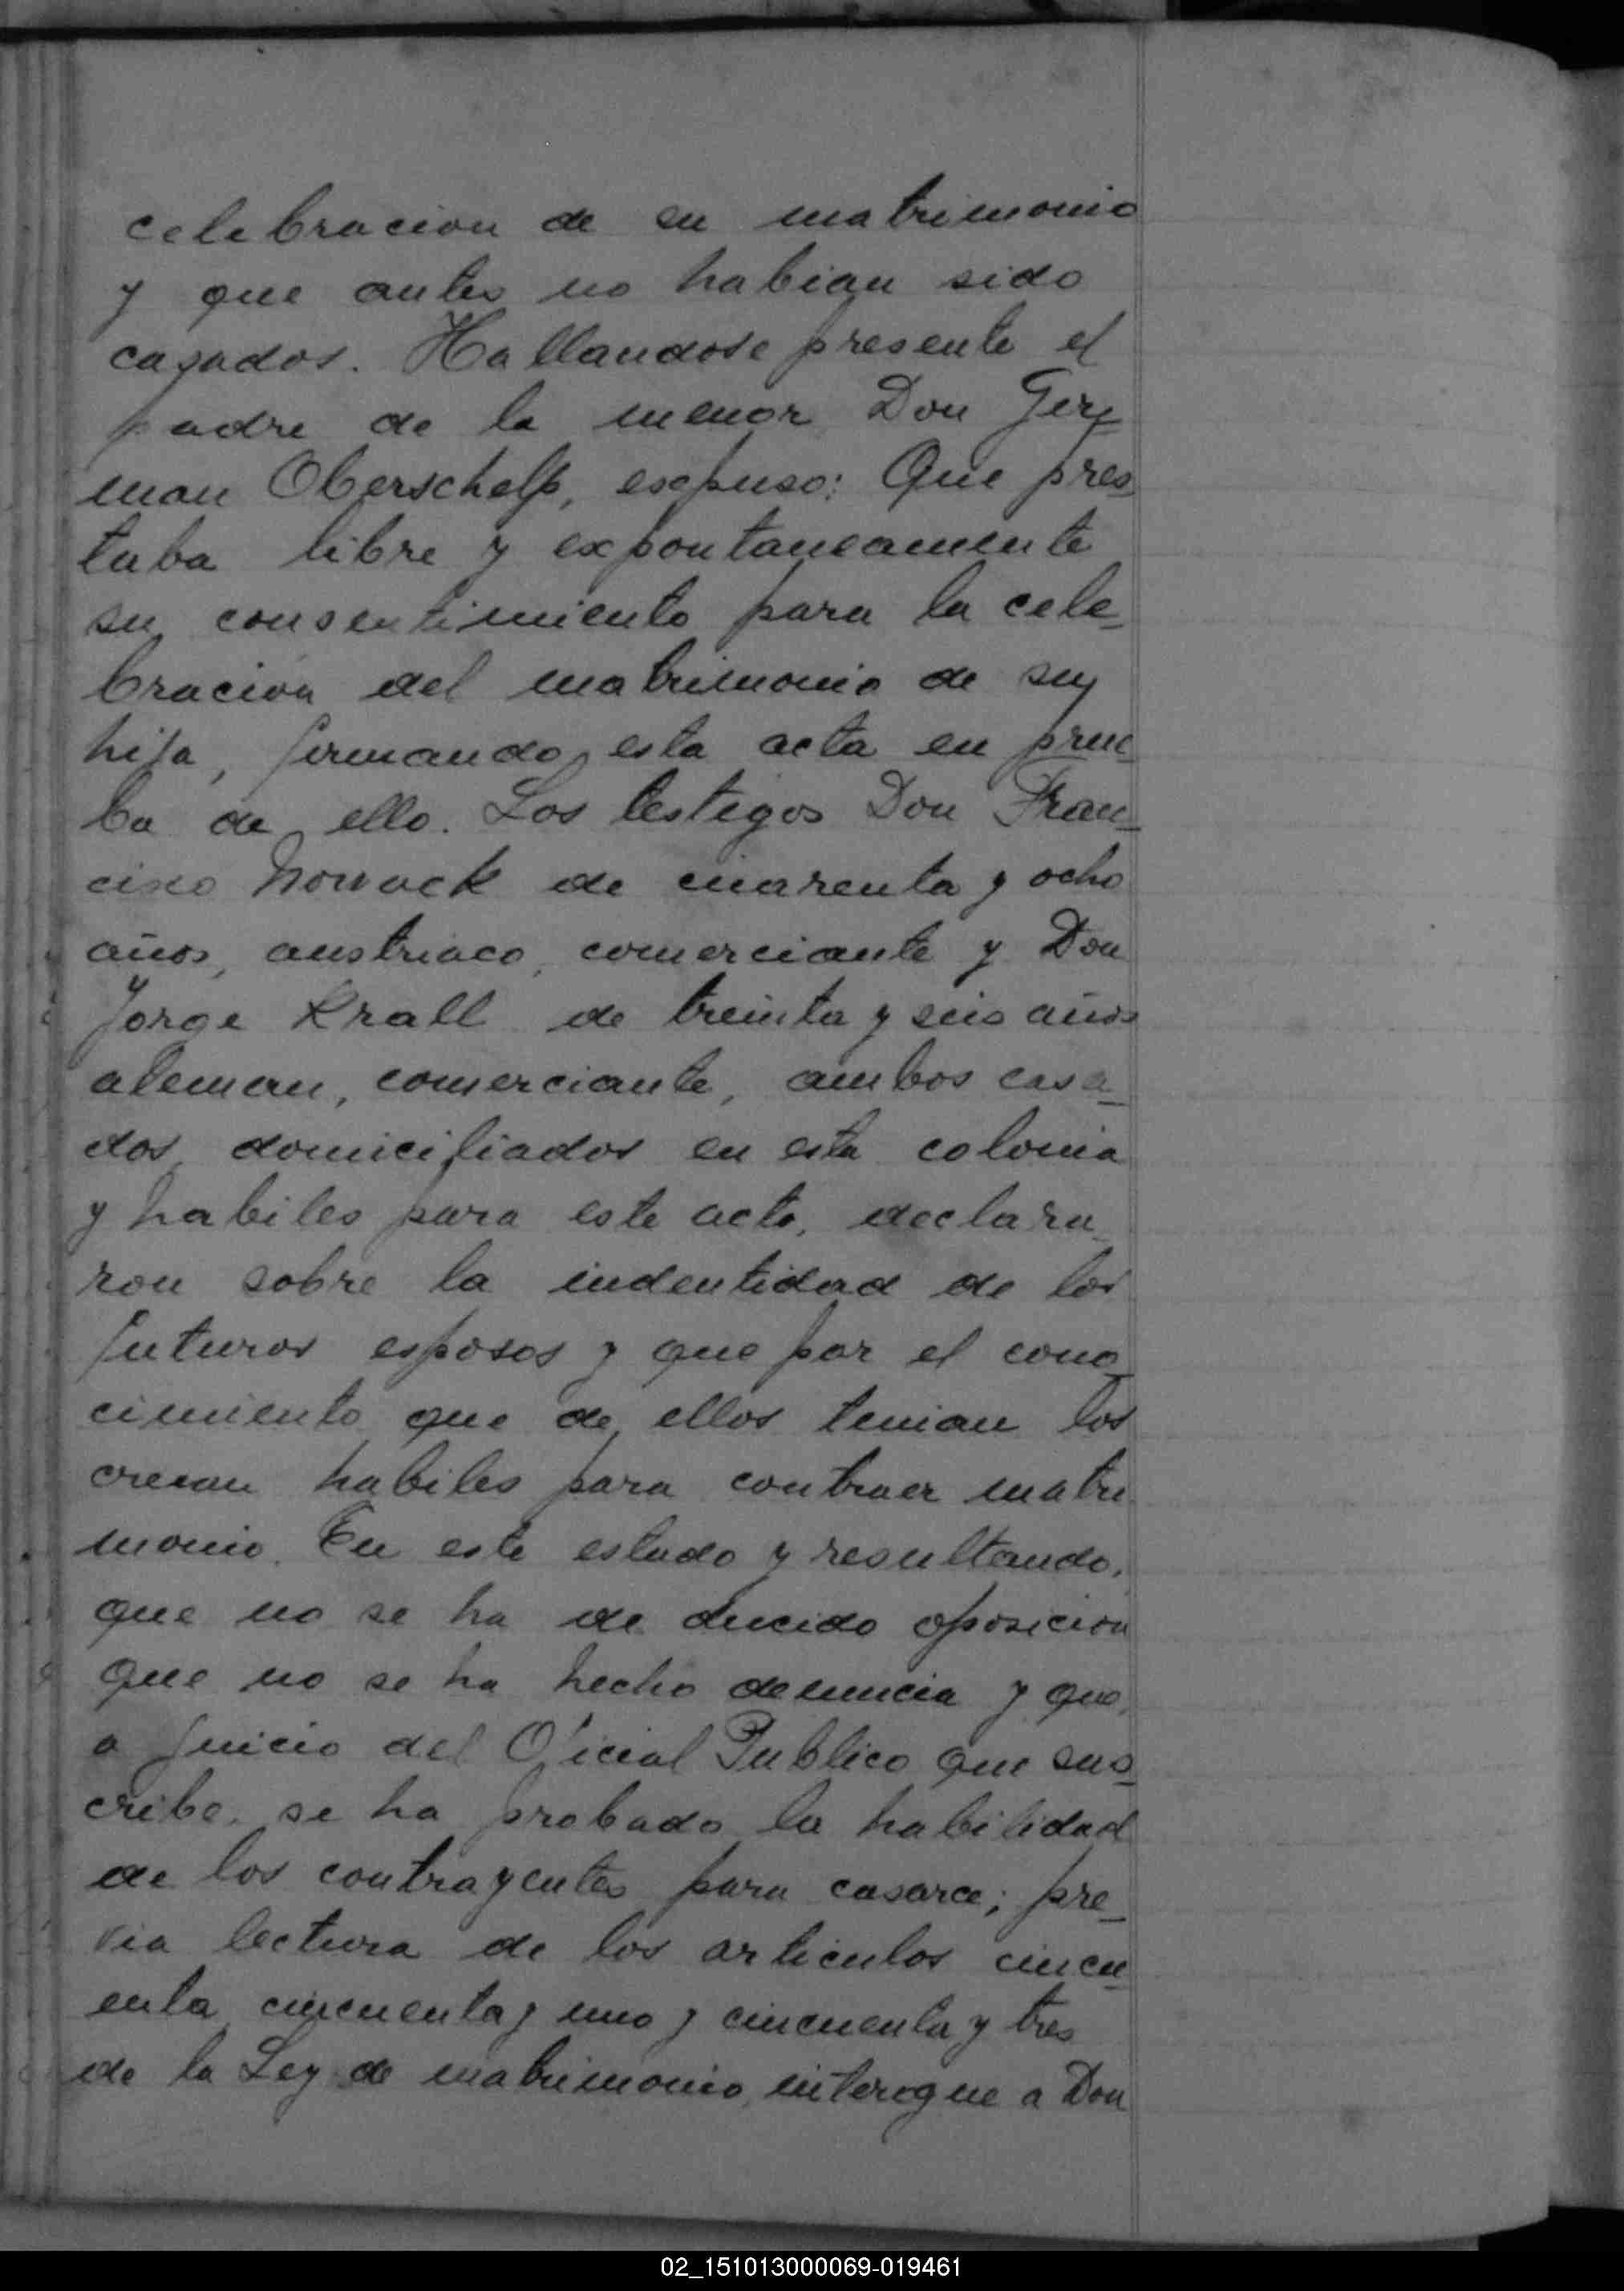 celebracion de su matrimonio
y que antes no habian sido
casados. Hallandose presente el
padre de la menor Don Ger_
man Oberschelp, esxpuso: Que pres
taba libre y expontaneamente
su consentimiento para la cele_
bracion del matrimonio de su
hija, firmando esta acta en prue_
ba de ello. Los testigos Don Fran_
cisco Nowack de cuarenta y ocho
años, austriaco, comerciante y Don
Jorge Krall de treinta y seis años
aleman, comerciante, ambos casa_
dos domiciliados en esta colonia
y habiles para este acto, declara_
ron sobre la indentidad de los
futuros esposos y que por el cono_
cimiento que de ellos tenian los
creian habiles para contraer matri
monio. En este estado y resultando,
que no se ha de ducido oposicion
que no se ha hecho denuncia y que,
a juicio del Oficial Publico que sus_
cribe, se ha probado la habilidad
de los contrayentes para casarce; pre_
via lectura de los articulos cincu_
enta, cincuenta y uno y cincuenta y tres
de la Ley de matrimonio, interogue a Don
02_151013000069-019461